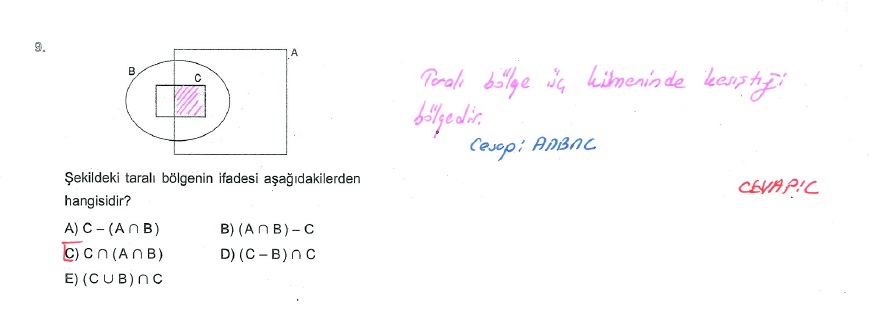 9.
A
B
C
Taralı bölge üç kümeninde kesiştiği
bölgedir.
Cevap: A∩B∩C
CEVAP: C
Şekildeki taralı bölgenin ifadesi aşağıdakilerden
hangisidir?
A) C – (A ∩ B) B) (A ∩ B) – C
C) C ∩ (A ∩ B) D) (C – B) ∩ C
E) (C ∪ B) ∩ C